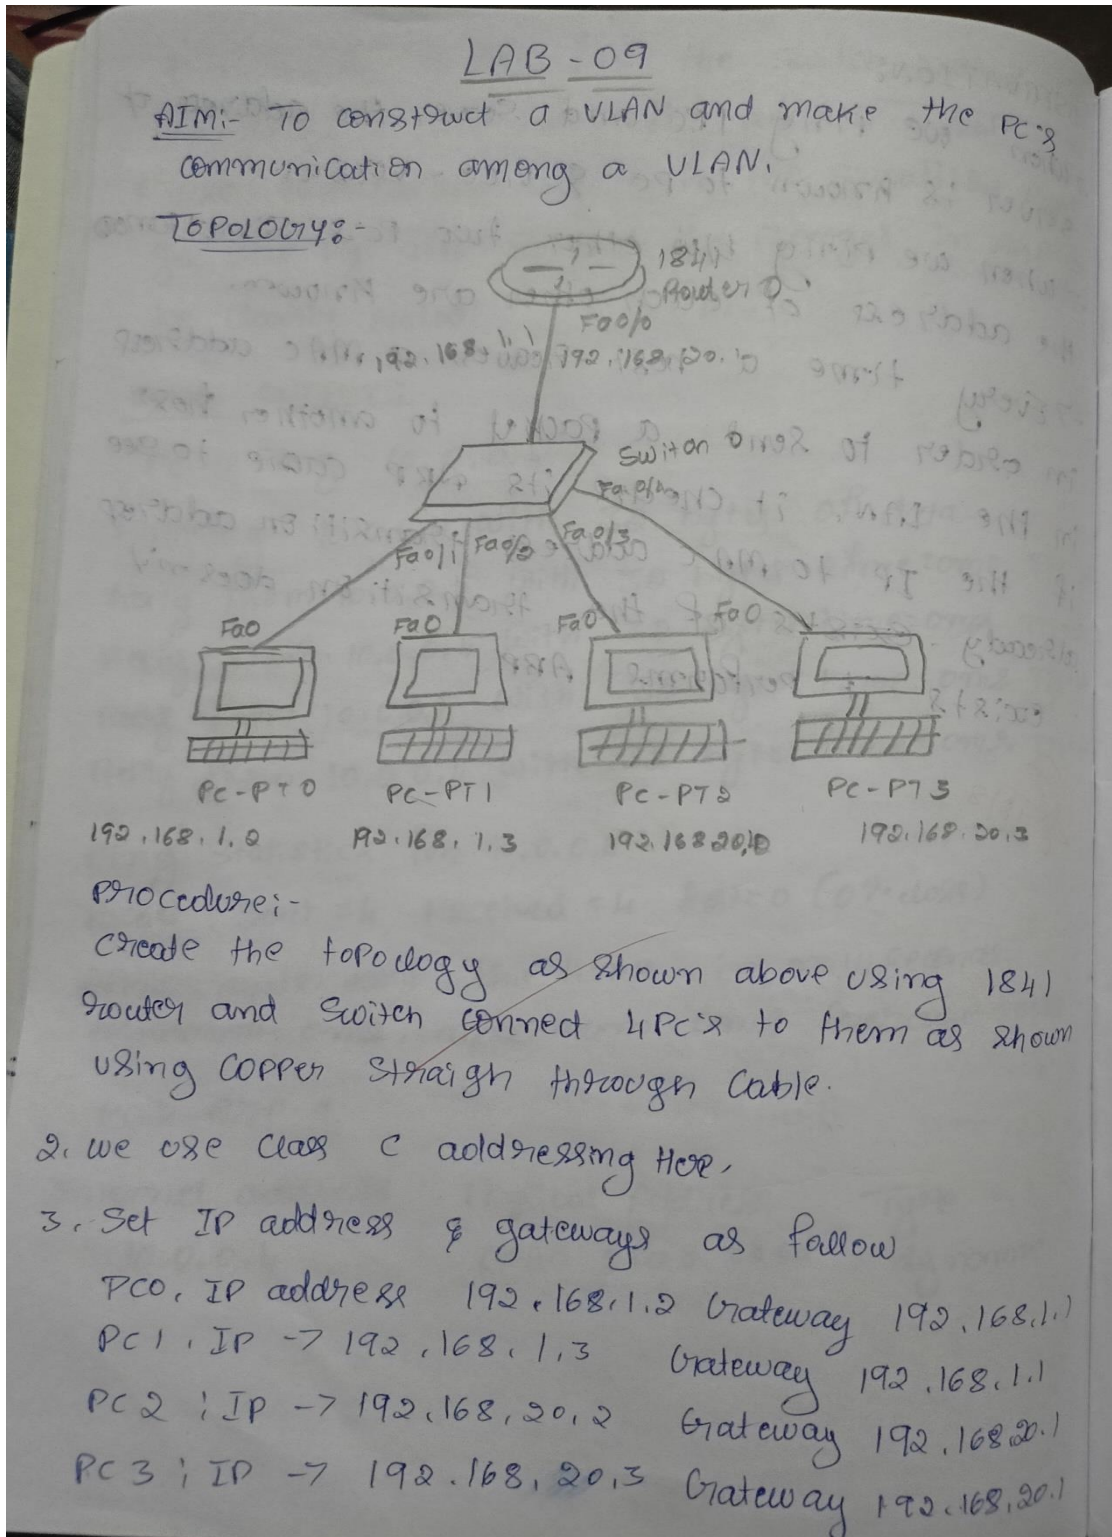 LAB - 09
AIM:- To construct a VLAN and make the PC's
communication among a VLAN.
TOPOLOGY:-
1841
Router 0
Fa0/0
192.168.1.1 192.168.20.1
Switch 0
Fa0/1 Fa0/2 Fa0/3 Fa0/4
Fa0 Fa0 Fa0 Fa0
PC-PT0 PC-PT1 PC-PT2 PC-PT3
192.168.1.2 192.168.1.3 192.168 20, 192.168.20.3
Procedure:-
Create the topology as shown above using 1841
router and switch connect 4PC's to them as shown
using copper straigh through cable.
2. we use class C addressing Here.
3. Set IP address & gateways as fallow
PC0. IP address 192.168.1.2 Gateway 192.168.1.1
PC1. IP → 192.168.1.3 Gateway 192.168.1.1
PC2 ; IP → 192.168.20.2 Gateway 192.168.20.1
PC3 ; IP → 192.168.20.3 Gateway 192.168.20.1